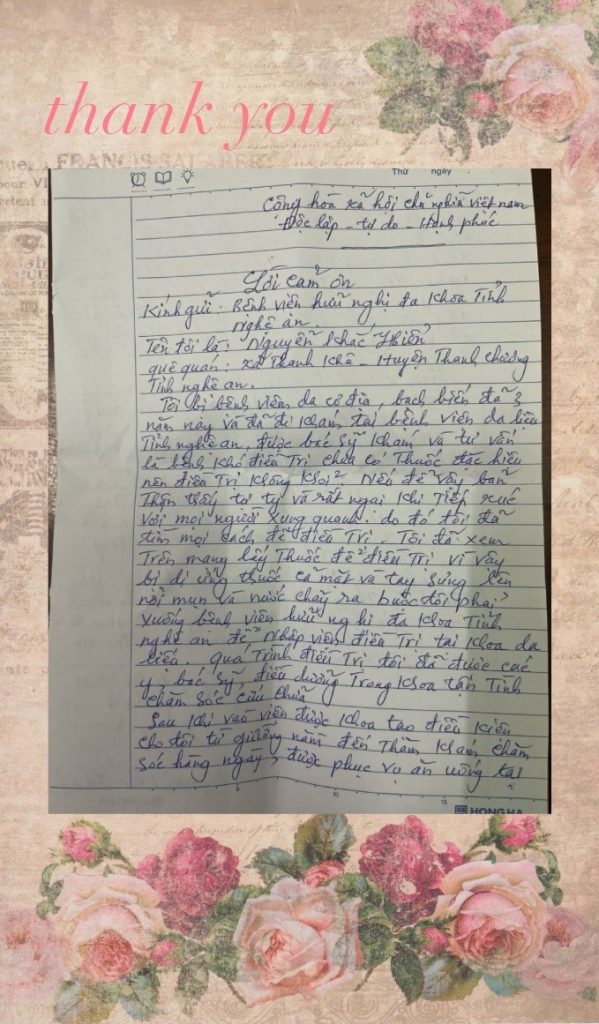 thank you
FRANCIS SALABERT
Thứ ngày
Cộng hòa xã hội chủ nghĩa việt nam
Độc lập - tự do - Hạnh phúc
Lời cảm ơn
Kính gửi: Bệnh viện hữu nghị đa khoa Tỉnh
Nghệ an
Tên tôi là: Nguyễn Khắc Hiển
quê quán: xã Thanh Khê - Huyện Thanh chương
Tỉnh nghệ an.
Tôi bị bệnh viêm da cơ địa, bạch biến đã 3
năm nay và đã đi khám tại bệnh viện da liễu
Tỉnh nghệ an, được bác sỹ khám và tư vấn
là bệnh khó điều Trị chưa có Thuốc đặc hiệu
nên điều Trị không khỏi. Nếu để vậy bản
Thận thấy tự ty và rất ngại khi Tiếp xúc
với mọi người xung quanh. do đó tôi đã
tìm mọi cách để điều Trị. Tôi đã xem
Trên mạng lấy Thuốc để điều Trị vì vậy
bị dị ứng thuốc cả mặt và tay sưng lên
nổi mụn và nước chảy ra buộc tôi phải
xuống bệnh viện hữu nghị đa khoa Tỉnh
nghệ an để Nhập viện điều Trị tại khoa da
liễu. Quá Trình điều Trị tôi đã được các
y, bác sỹ, điều dưỡng Trong khoa tận Tình
chăm sóc cứu chữa
Sau khi vào viện được khoa tạo điều kiện
cho tôi từ giường nằm đến Thăm khám, chăm
sóc hàng ngày, được phục vụ ăn uống tại
5 10 15
HONG HA